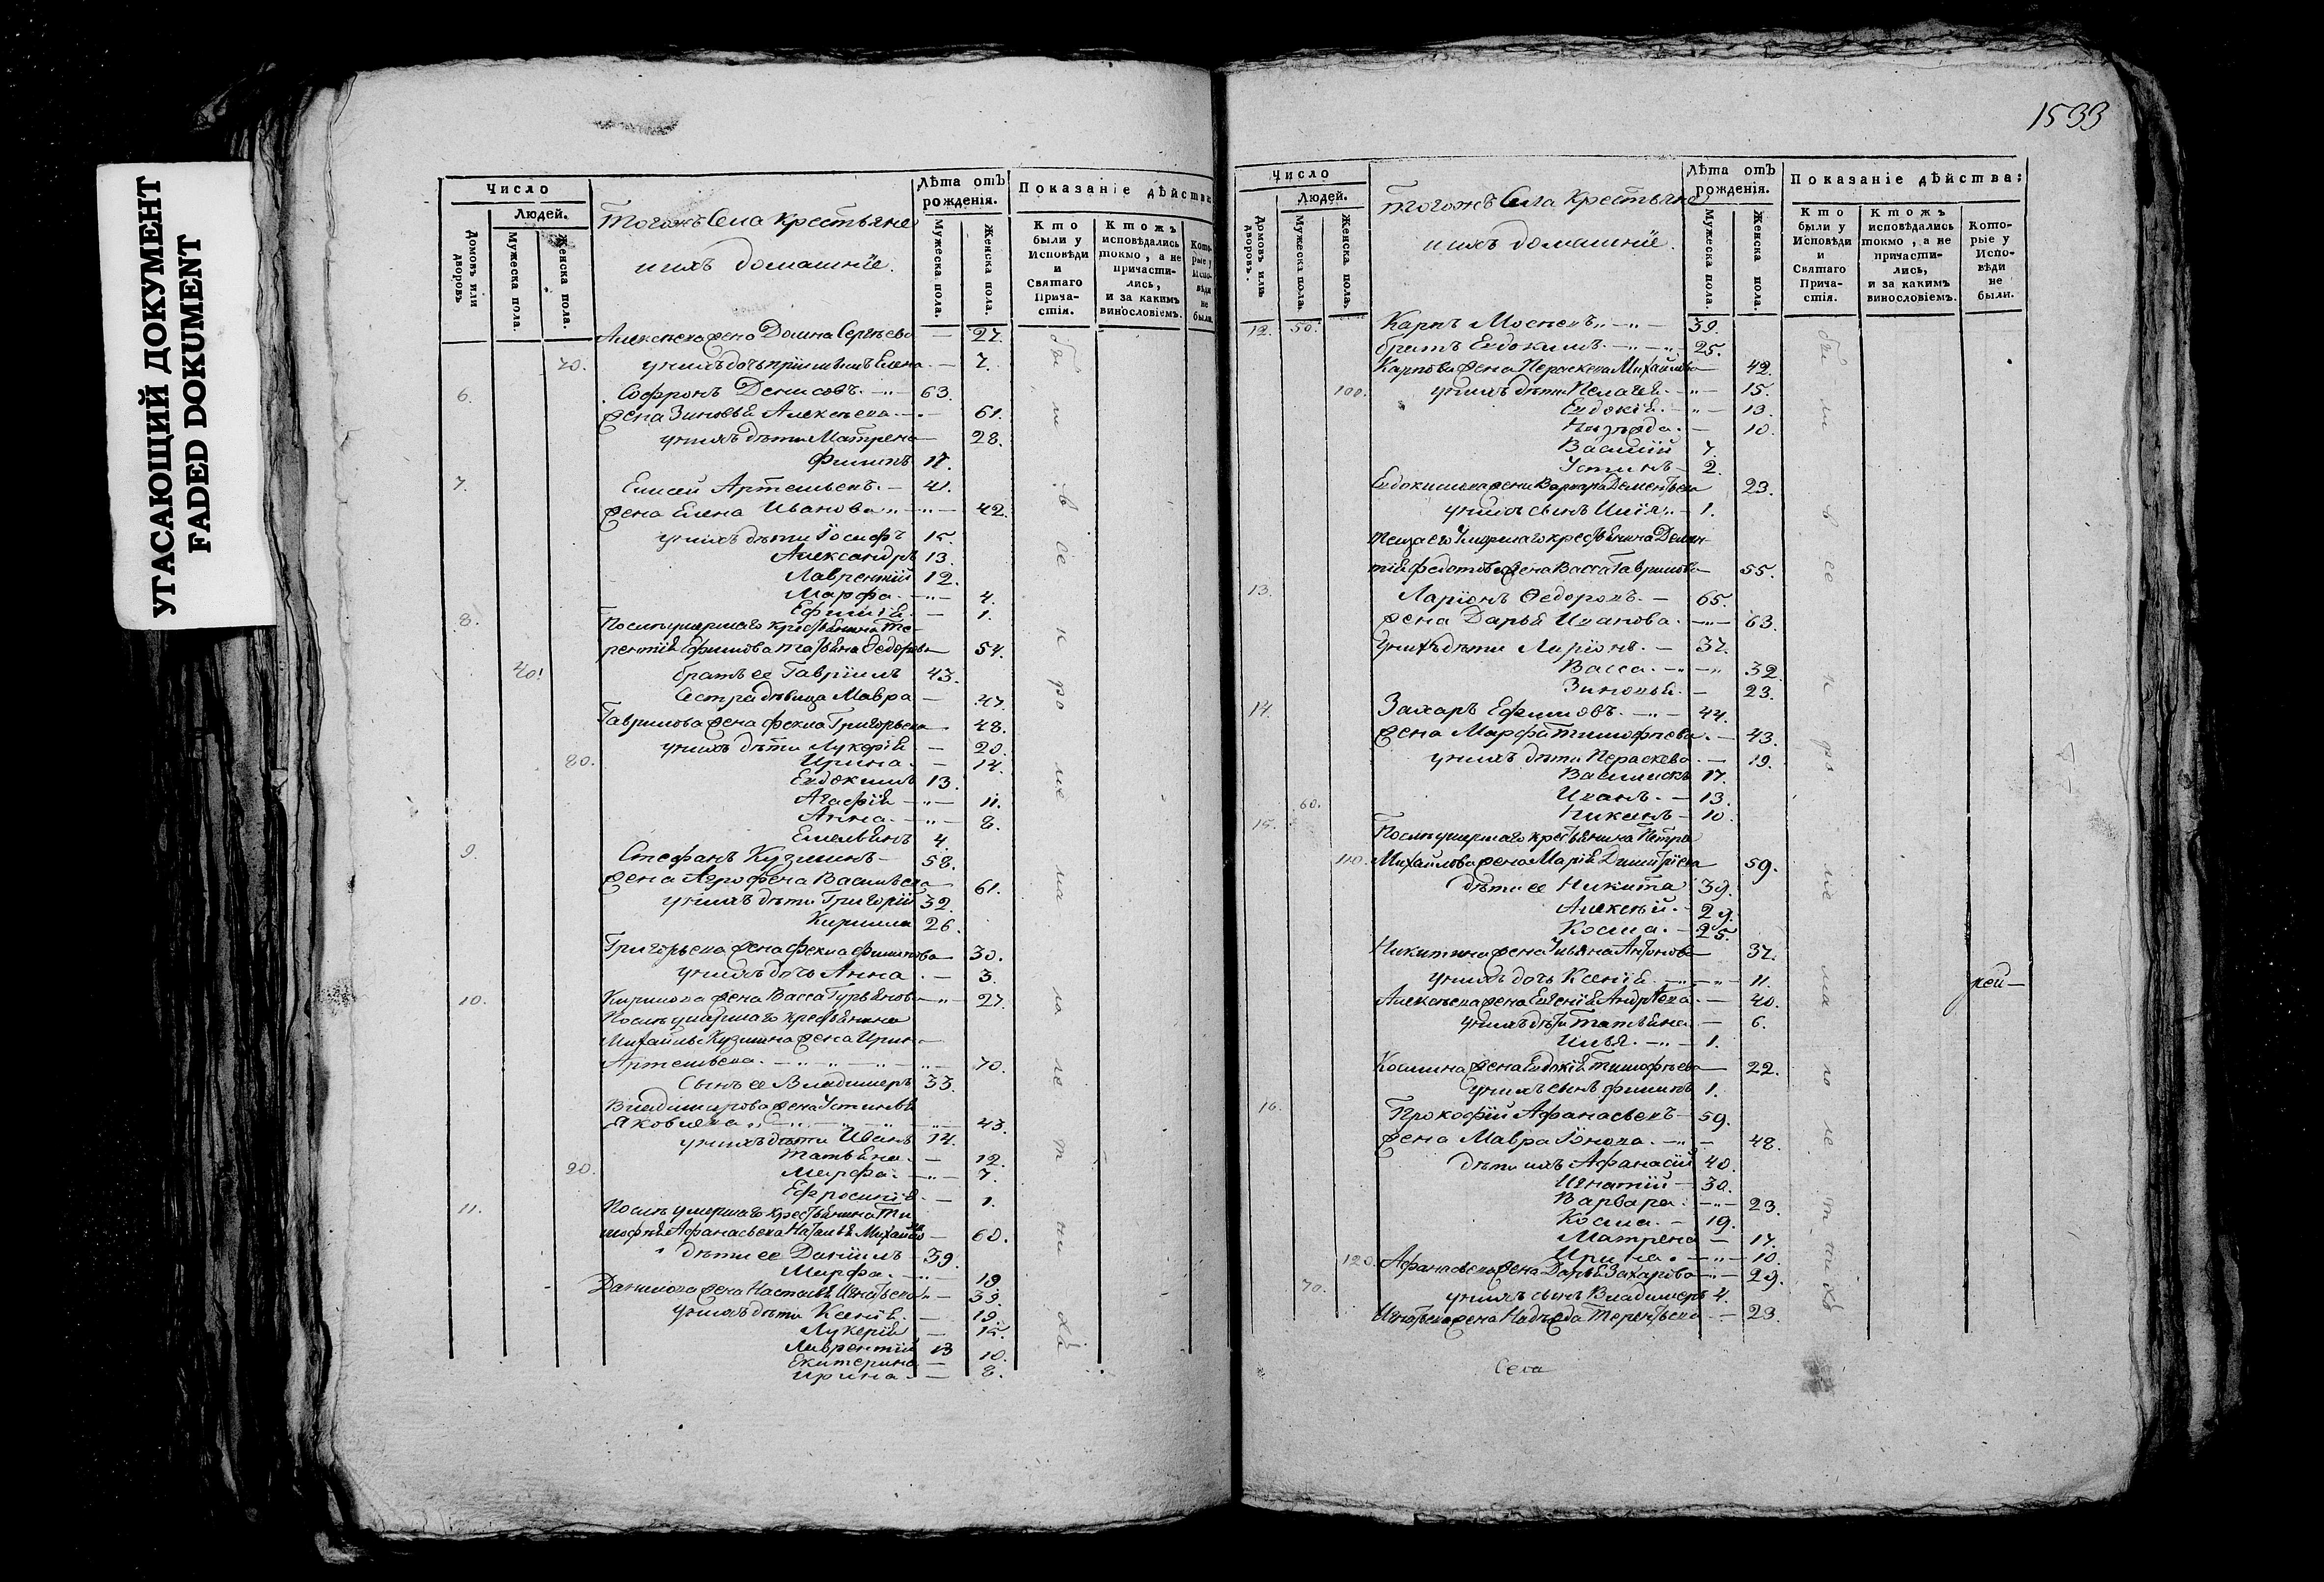 УГАСАЮЩИЙ ДОКУМЕНТ
FADED DOKUMENT
Число
Людей.
Домовъ или дворовъ
Мужеска пола.
Женска пола.
Тогожъ Села Крестьяне
и ихъ домашніе.
Лѣта отъ рожденія.
Мужеска пола.
Женска пола.
Показаніе дѣйства
Кто были у Исповѣди и Святаго Прича-стія.
Ктожъ исповѣдались токмо, а не причасти-лись, и за какимъ винословіемъ.
Кото-рые у Испо-вѣди не были.
Алексѣева жена Домна Сергѣева — 27.
70. у нихъ дочь Елена — 7.
6. Софронъ Денисовъ — 63.
жена Зиновья Алексѣева — 61.
у нихъ дѣти Матрена — 28.
Филипъ 17.
7. Елисей Артемьевъ — 41.
жена Елена Иванова — 42.
у нихъ дѣти Іосифъ 15.
Александръ 13.
Лаврентій 12.
Марфа — 4.
Ефимія — 1.
8. Послѣ умершаго крестьянина Те-
рентія Ефимова Татьяна Федорова 54.
40. братъ ее Гавріилъ 43.
Сестра дѣвица Мавра — 47.
Гаврилова жена Фекла Григорьева 48.
у нихъ дѣти Лукерія — 20.
80. Ирина — 14.
Евдокимъ 13.
Агафія — 11.
Анна — 8.
Емельянъ 4.
9. Стефанъ Кузминъ — 58.
жена Агрофена Васильева 61.
у нихъ дѣти Григорій 32.
Кирилла 26.
Григорьева жена Фекла Филипова 30.
у нихъ дочь Анна — 3.
10. Кирилова жена Васса Гурьянова — 27.
Послѣ умершаго крестьянина
Михайлы Кузмина жена Ирин.
Артемьева — 70.
Сынъ ее Владимеръ 33.
Владимирова жена Устинья
Яковлева — 43.
у нихъ дѣти Иванъ 14.
Татьяна — 12.
90. Марфа — 7.
Ефросинія — 1.
11. Послѣ умершаго крестьянина Ти-
мофѣя Афанасьева Наталья Михайло — 60.
дѣти ее Даніилъ — 39.
Марфа — 19
Данилова жена Настасья Игнатьева — 39.
у нихъ дѣти Ксенія — 19.
Лукерія — 15.
Лаврентій 13
Екатерина — 10.
Ирина — 8.
1533
Число
Людей.
Домовъ или дворовъ.
Мужеска пола.
Женска пола.
Тогожъ Села Крестьяне
и ихъ домашніе.
Лѣта отъ рожденія.
Мужеска пола.
Женска пола.
Показаніе дѣйства:
Кто были у Исповѣди и Святаго Прича-стія.
Ктожъ исповѣдались токмо, а не причасти-лись, и за какимъ винословіемъ.
Кото-рые у Испо-вѣди не были.
12. 50. Карпъ Мосѣевъ — 39.
братъ Евдокимъ — 25.
Карпова жена Пераскева Михайлова 42.
100. у нихъ дѣти Пелагея — 15.
Евдокія — 13.
— 10.
Василій 7.
Устинъ — 2.
Евдокимова жена Варвара Дементьева 23.
у нихъ сынъ Илія — 1.
теща его умершаго крестьянина Демен-
тія Федотова жена Васса Гаврилова 55.
13. Ларіонъ Федоровъ — 65.
жена Дарья Иванова — 63.
у нихъ дѣти Ларіонъ — 37.
Васса — 32.
Зиновья — 23.
14. Захаръ Ефимовъ — 44.
жена Марфа Тимофѣева — 43.
у нихъ дѣти Пераскева — 19.
Василискъ 17.
Иванъ — 13.
60. — 10.
15. Послѣ умершаго крестьянина Петра
110. Михайлова жена Марія Димитріева 59.
дѣти ее Никита 39.
Алексѣй — 29.
Косма — 25.
Никитина жена Ульяна Антонова 37.
у нихъ дочь Ксенія — 11.
Алексѣева жена Евгенія Андрѣева — 40.
у нихъ дѣти Татьяна — 6.
Илья — 1.
Космина жена Евдокія Тимофѣева 22.
у нихъ сынъ Филипъ 1.
16. Прокофій Афанасьевъ — 59.
жена Мавра — 48.
дѣти ихъ Афанасій 40.
Игнатій — 30.
Варвара — 23.
Косма — 19.
Матрена — 17.
Ирина — 10.
120. Афанасьева жена Дарья Захарова — 29.
70. у нихъ сынъ Владимеръ 4.
Игнатьева жена Надежда Терентьева — 23.
Села